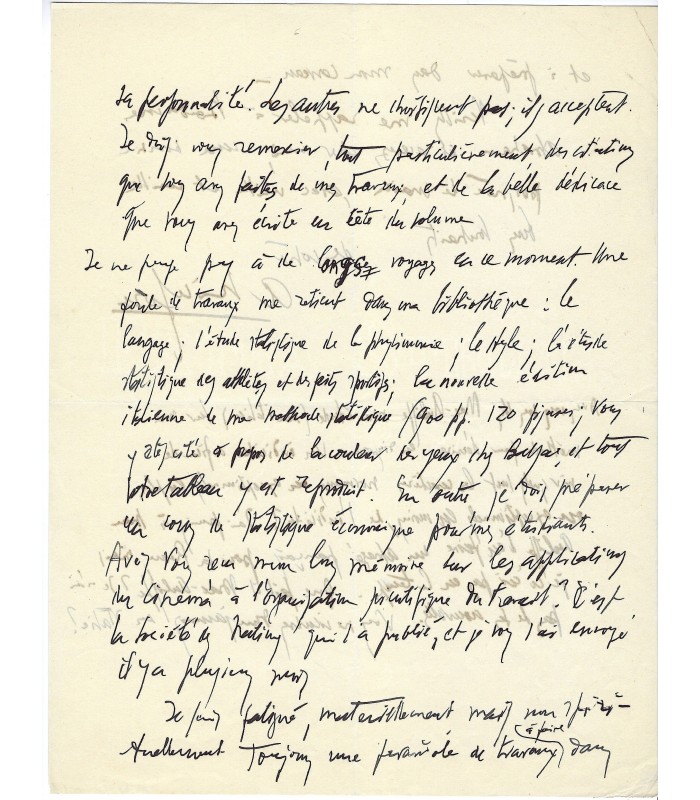 sa personnalité. Les autres ne choisissent pas ; ils acceptent.
Je dois vous remercier, tout particulièrement des citations
que vous avez faites de mes travaux, et de la belle dédicace
que vous avez écrite en tête du volume
Je ne pense pas à de longs voyages en ce moment. Une
foule de travaux me retient dans ma bibliothèque : le
langage ; l'étude statistique de la physionomie ; le style ; l'étude
statistique des athlètes et des faits sportifs ; la nouvelle édition
italienne de ma méthode statistique (900 pp. 120 figures ; vous
y êtes cité à propos de la couleur des yeux chez Balzac, et tout
votre tableau y est reproduit. En outre je dois préparer
un cours de statistique économique pour mes étudiants.
Avez vous reçu mon long mémoire sur les applications
du Cinéma à l'organisation scientifique du travail ? C'est
la Société des Nations qui l'a publié, et je vous l'ai envoyé
il y a plusieurs mois
Je suis fatigué, matériellement mais non spiri-
tuellement Toujours une de travaux à faire dans